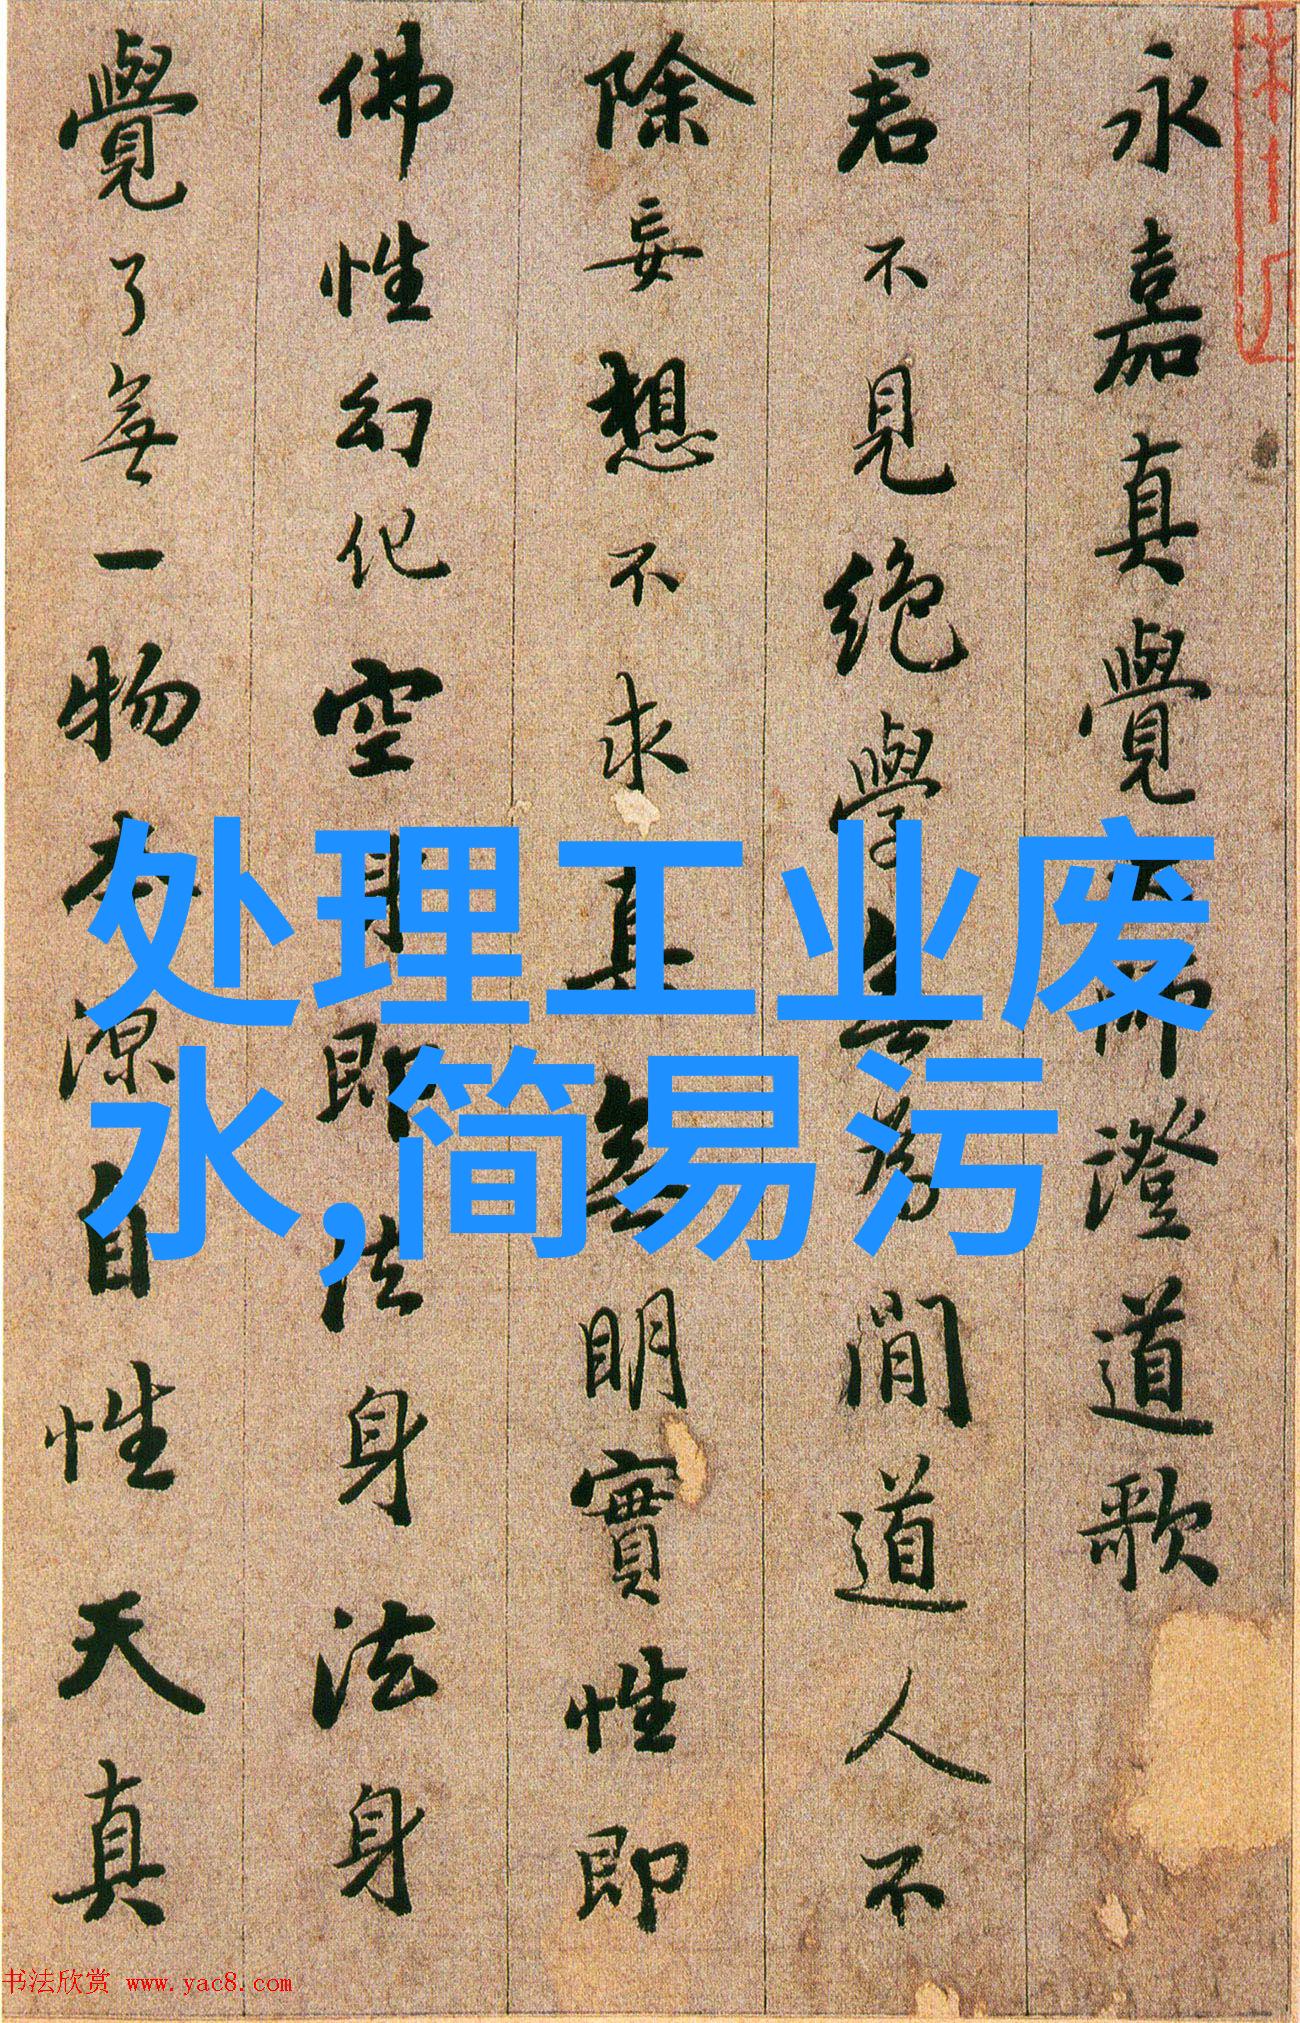 永嘉真覺大師澄道歌
君不見絕學無為閒道人不
除妄想不求真無明實性即
佛性幻化空身即法身法身
覺了無一物本源自性天真
处理工业废
水,简易污
书法欣赏 www.yac8.com